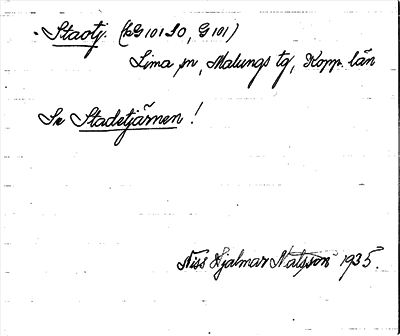 Staotj. (bG 101 SO, G 101)
Lima sn, Malungs tg, Kopp. län
Se Stadetjärnen!
Niss Hjalmar Matsson 1935.